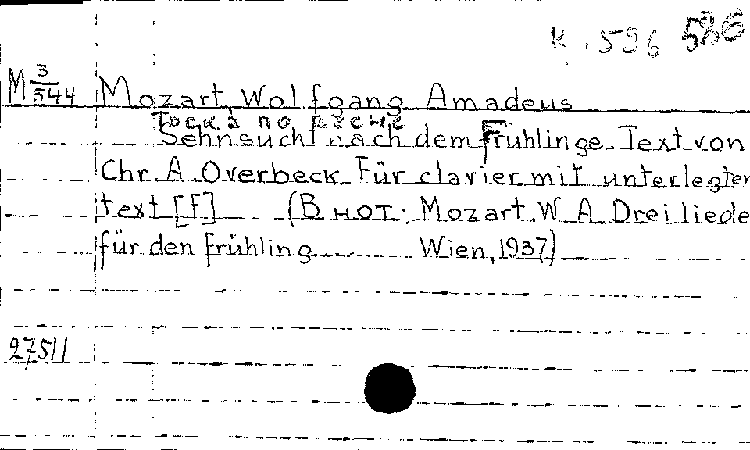 K. 596 596
M 3/544 Mozart, Wolfgang Amadeus
Тоска по весне
Sehnsucht nach dem Frühlinge. Text von
Chr. A. Overbeck. Für clavier mit unterlegter
text [F] (В нот: Mozart W. A. Drei liede
für den Frühling Wien, 1937)
27511